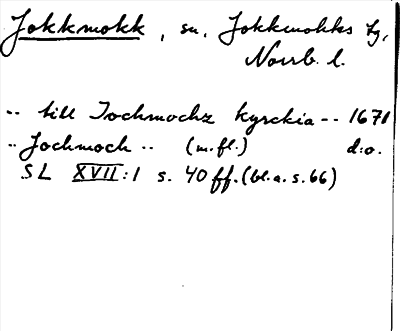 Jokkmokk, sn, Jokkmokks tg,
Norrb. l.
.. till Jochmochz kyrckia -- 1671
.. Jochmoch .. (m.fl.) d:o.
SL XVII:1 s. 40 ff. (bl.a. s. 66)